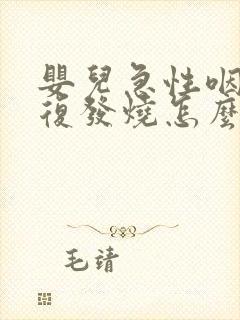 嬰兒急性咽
復發燒怎麼
毛靖